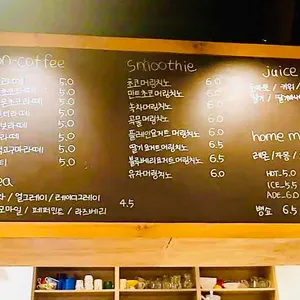 n-coffee
라떼 5.0
초코라떼 5.0
라떼 5.0
라떼 5.0
라떼 5.0
라떼 5.0
고구마라떼 5.0
티 5.0
ea
/ 얼그레이 / 레이디그레이
모마일 / 페퍼민트 / 라즈베리 4.5
smoothie
초코머랭치노 6.0
민트초코머랭치노 6.0
녹차머랭치노 6.0
곡물머랭치노 6.0
플레인요거트머랭치노 6.0
딸기요거트머랭치노 6.5
블루베리요거트머랭치노 6.5
유자머랭치노 6.0
juice
/ 키위 /
딸기 /
home m
레몬 / 자몽 /
HOT_5.0
ICE_5.5
ADE_6.0
병 6.5